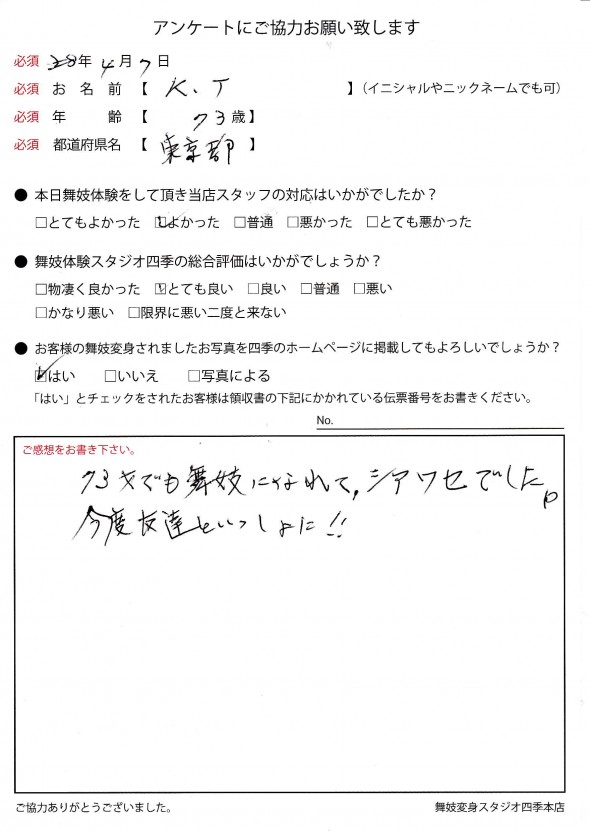 アンケートにご協力お願い致します
必須 28年 4月 7日
必須 お名前【 K.T 】(イニシャルやニックネームでも可)
必須 年齢【 73歳】
必須 都道府県名【 東京都 】
● 本日舞妓体験をして頂き当店スタッフの対応はいかがでしたか?
□とてもよかった ☑よかった □普通 □悪かった □とても悪かった
● 舞妓体験スタジオ四季の総合評価はいかがでしょうか?
□物凄く良かった ☑とても良い □良い □普通 □悪い
□かなり悪い □限界に悪い二度と来ない
● お客様の舞妓変身されましたお写真を四季のホームページに掲載してもよろしいでしょうか?
☑はい □いいえ □写真による
「はい」とチェックをされたお客様は領収書の下記にかかれている伝票番号をお書きください。
No.
ご感想をお書き下さい。
73才でも舞妓になれて,シアワセでした。
今度友達といっしょに!!
ご協力ありがとうございました。
舞妓変身スタジオ四季本店